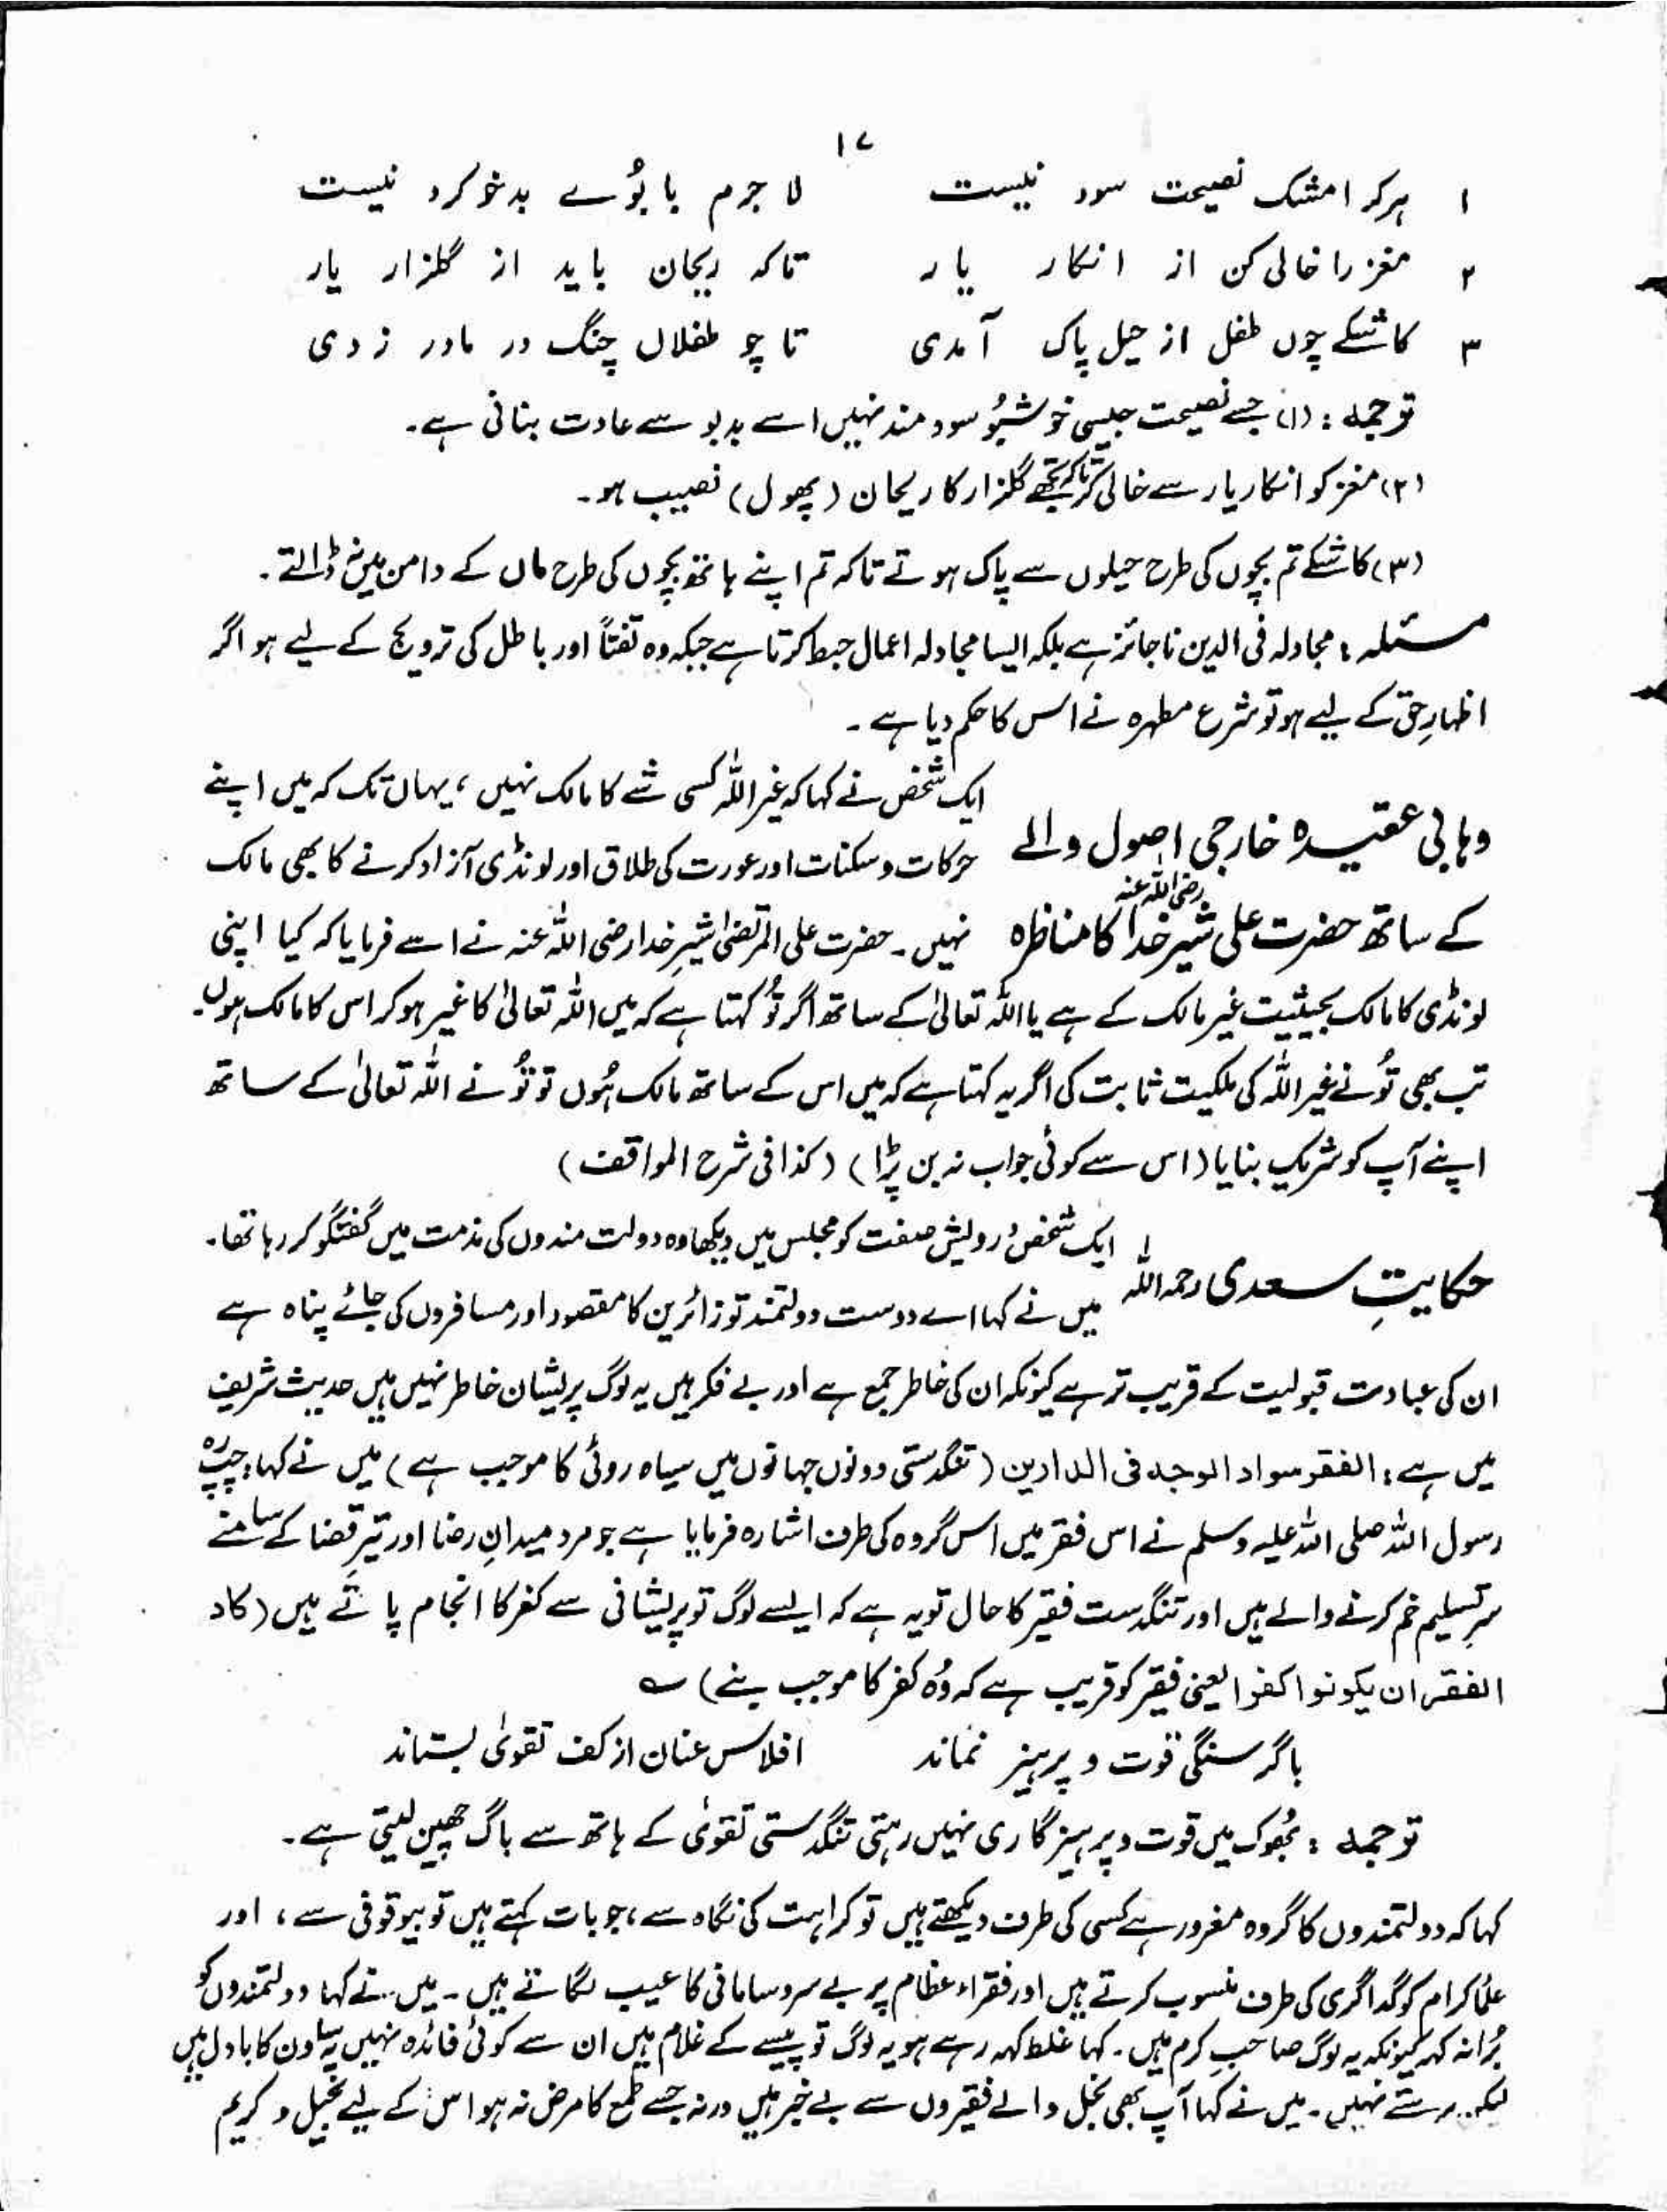 ۱۷
۱ ہر کرا مشک نصیحت سود نیست لا جرم با بُوے بد خو کرد نیست
۲ مغز را خالی کن از انکار یار تا کہ ریحان باید از گلزار یار
۳ کاشکے چوں طفل از حیل پاک آمدی تا چو طفلاں چنگ در مادر زدی
ترجمہ : (۱) جسے نصیحت جیسی خوشبُو سود مند نہیں اسے بدبو سے عادت بنانی ہے۔
(۲) مغز کو انکار یار سے خالی کر تاکہ تجھے گلزار کا ریحان (پھول) نصیب ہو۔
(۳) کاشکے تم بچوں کی طرح حیلوں سے پاک ہوتے تاکہ تم اپنے ہاتھ بچوں کی طرح ماں کے دامن میں نہ ڈالتے۔
مسئلہ : مجادلہ فی الدین ناجائز ہے بلکہ ایسا مجادلہ اعمال حبط کرتا ہے جبکہ وہ تفتاً اور باطل کی ترویج کے لیے ہو اگر
اظہارِ حق کے لیے ہو تو شرع مطہرہ نے اس کا حکم دیا ہے ۔
ایک شخص نے کہا کہ غیر اللہ کسی شے کا مالک نہیں ، یہاں تک کہ میں اپنے
وہابی عقیدہ خارجی اصول والے حرکات و سکنات اور عورت کی طلاق اور لونڈی آزاد کرنے کا بھی مالک
کے ساتھ حضرت علی شیر خدا رضی اللہ عنہ کا مناظرہ نہیں ۔ حضرت علی المرتضیٰ شیرِ خدا رضی اللہ عنہ نے اسے فرمایا کہ کیا اپنی
لونڈی کا مالک بحیثیت غیر مالک کے ہے یا اللہ تعالیٰ کے ساتھ اگر تُو کہتا ہے کہ میں اللہ تعالیٰ کا غیر ہو کر اس کا مالک ہوں۔
تب بھی تُو نے غیر اللہ کی ملکیت ثابت کی اگر یہ کہتا ہے کہ میں اس کے ساتھ مالک ہُوں تو تُو نے اللہ تعالیٰ کے ساتھ
اپنے آپ کو شریک بنایا (اس سے کوئی جواب نہ بن پڑا) (کذا فی شرح المواقف)
ایک شخص درویش صفت کو مجلس میں دیکھا وہ دولت مندوں کی مذمت میں گفتگو کر رہا تھا۔
حکایتِ سعدی رحمہ اللہ میں نے کہا اے دوست دولتمند تو زائرین کا مقصود اور مسافروں کی جائے پناہ ہے
ان کی عبادت قبولیت کے قریب تر ہے کیونکہ ان کی خاطر جمع ہے اور بے فکر ہیں یہ لوگ پریشان خاطر نہیں ہیں حدیث شریف
میں ہے : الفقر سواد الوجہ فی الدارین (تنگدستی دونوں جہانوں میں سیاہ روئی کا موجب ہے) میں نے کہا : چپ رہ
رسول اللہ صلی اللہ علیہ وسلم نے اس فقر میں اس گروہ کی طرف اشارہ فرمایا ہے جو مرد میدانِ رضا اور تیرِ قضا کے سامنے
سرِ تسلیم خم کرنے والے ہیں اور تنگدست فقیر کا حال تو یہ ہے کہ ایسے لوگ تو پریشانی سے کفر کا انجام پاتے ہیں (کاد
الفقر ان یکونوا کفرا یعنی فقیر کو قریب ہے کہ وُہ کفر کا موجب بنے) ؎
با گرسنگی قوت و پرہیز نماند افلاس عنان از کف تقویٰ بستاند
ترجمہ : بُھوک میں قوت و پرہیزگاری نہیں رہتی تنگدستی تقویٰ کے ہاتھ سے باگ چھین لیتی ہے۔
کہا کہ دولتمندوں کا گروہ مغرور ہے کسی کی طرف دیکھتے ہیں تو کراہت کی نگاہ سے ، جو بات کہتے ہیں تو بیوقوفی سے ، اور
علما کرام کو گداگری کی طرف منسوب کرتے ہیں اور فقراء عظام پر بے سروسامانی کا عیب لگاتے ہیں ۔ میں نے کہا دولتمندوں کو
بُرا نہ کہہ کیونکہ یہ لوگ صاحبِ کرم ہیں ۔ کہا غلط کہہ رہے ہو یہ لوگ تو پیسے کے غلام ہیں ان سے کوئی فائدہ نہیں یہ ساون کا بادل ہیں
برستے نہیں ۔ میں نے کہا آپ بھی بخل والے فقیروں سے بے خبر ہیں ورنہ جسے طمع کا مرض نہ ہو اس کے لیے بخیل و کریم